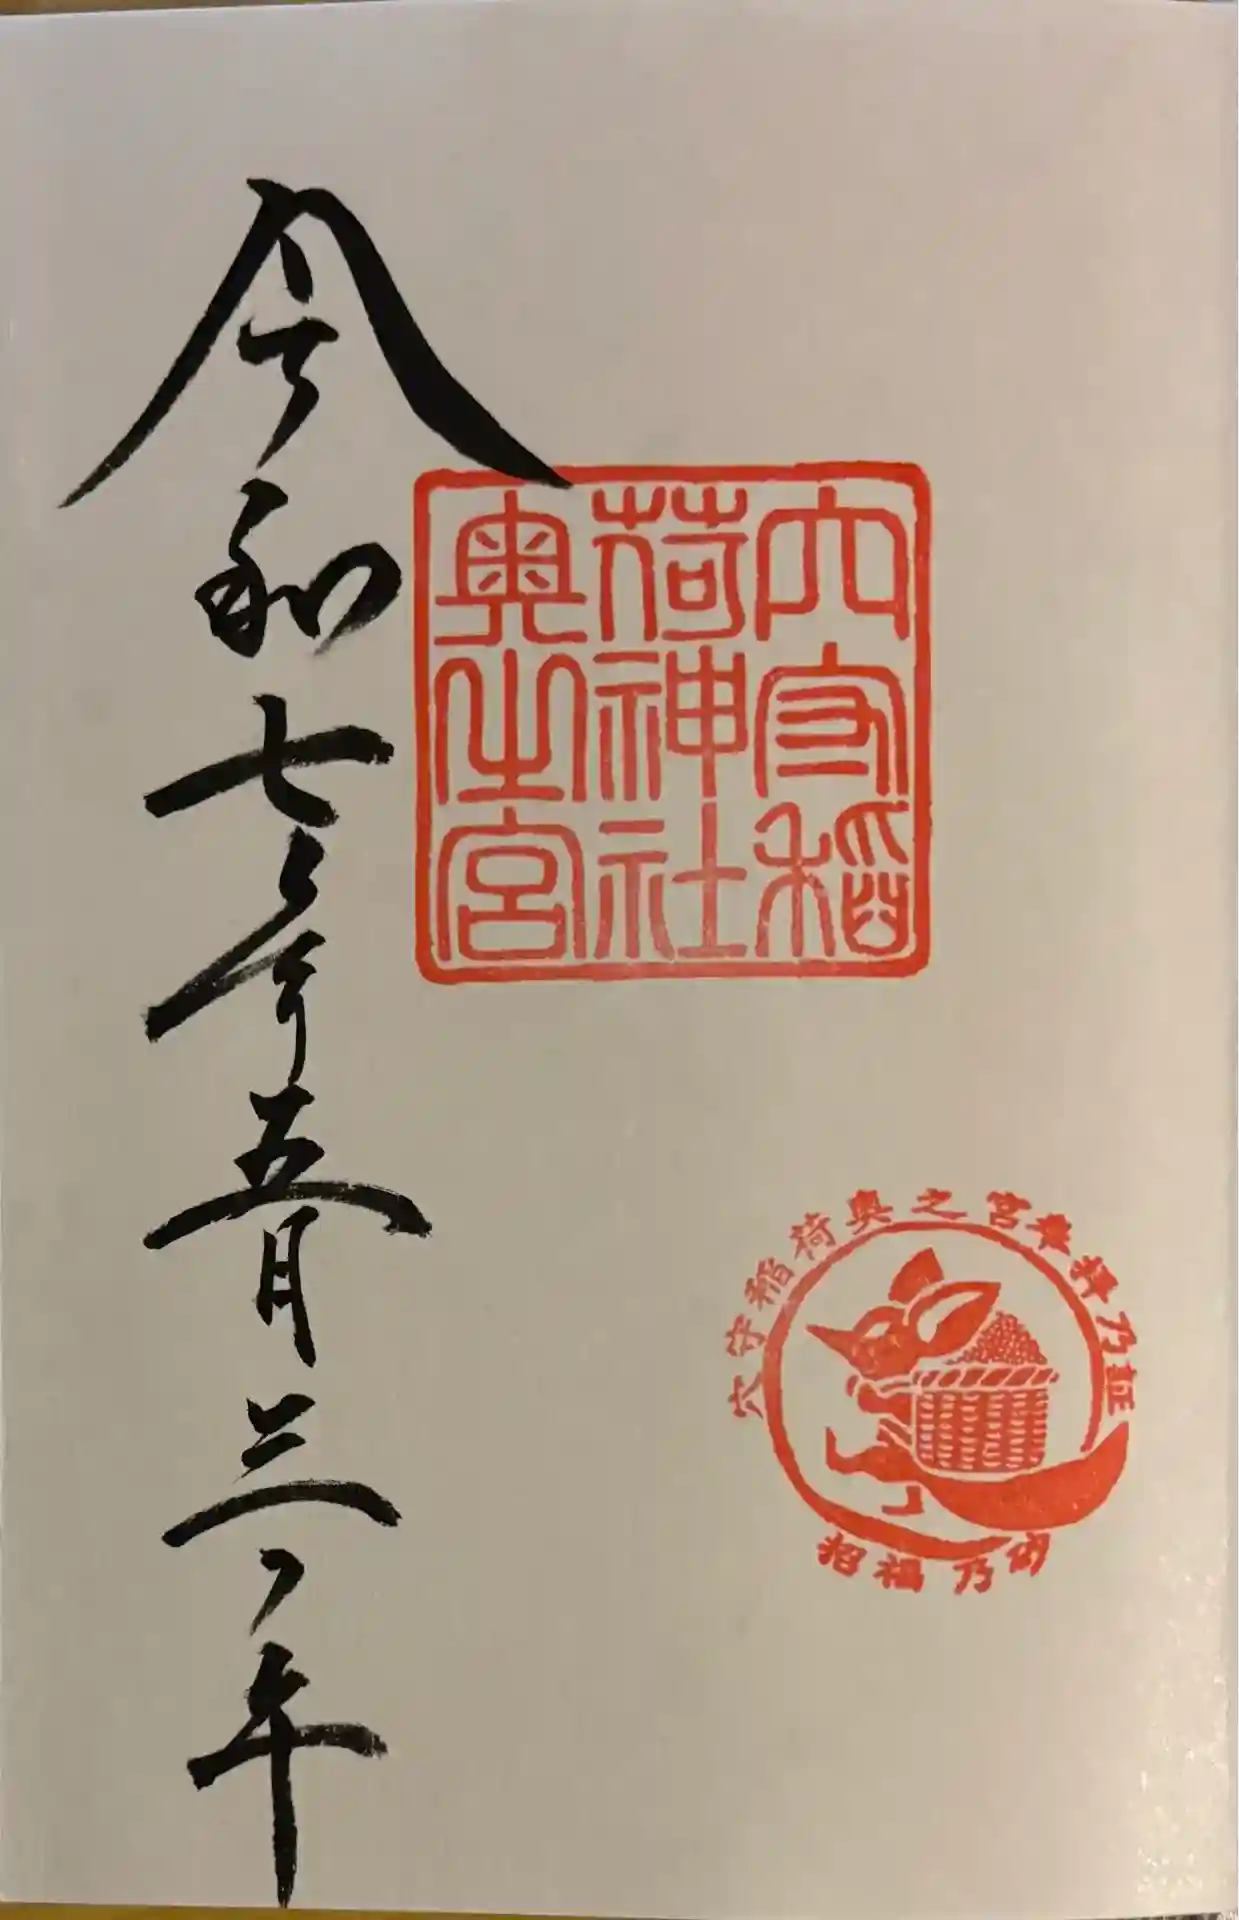 穴守稲
荷神社
奥之宮
令和七年五月三ノ午
穴守稲荷奥之宮奉拝乃証
招福乃砂